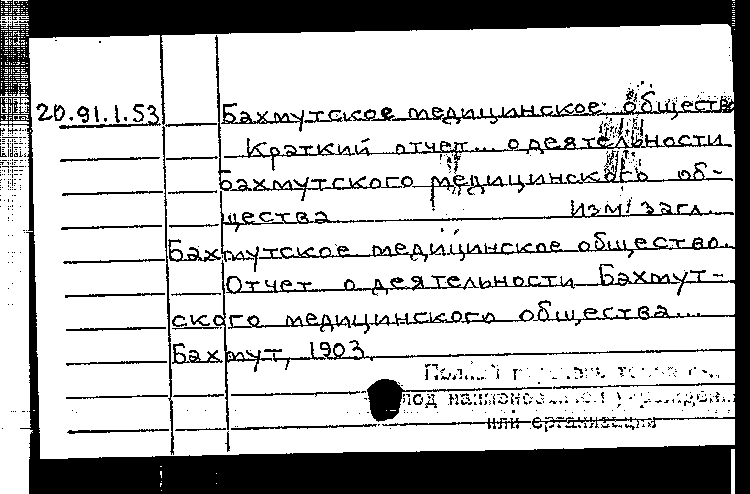 20.91.1.53 Бахмутское медицинское общество
Краткий отчет... о деятельности
Бахмутского медицинского об-
щества Изм. загл.
Бахмутское медицинское общество.
Отчет о деятельности Бахмут-
ского медицинского общества...
Бахмут, 1903.
под
или организации